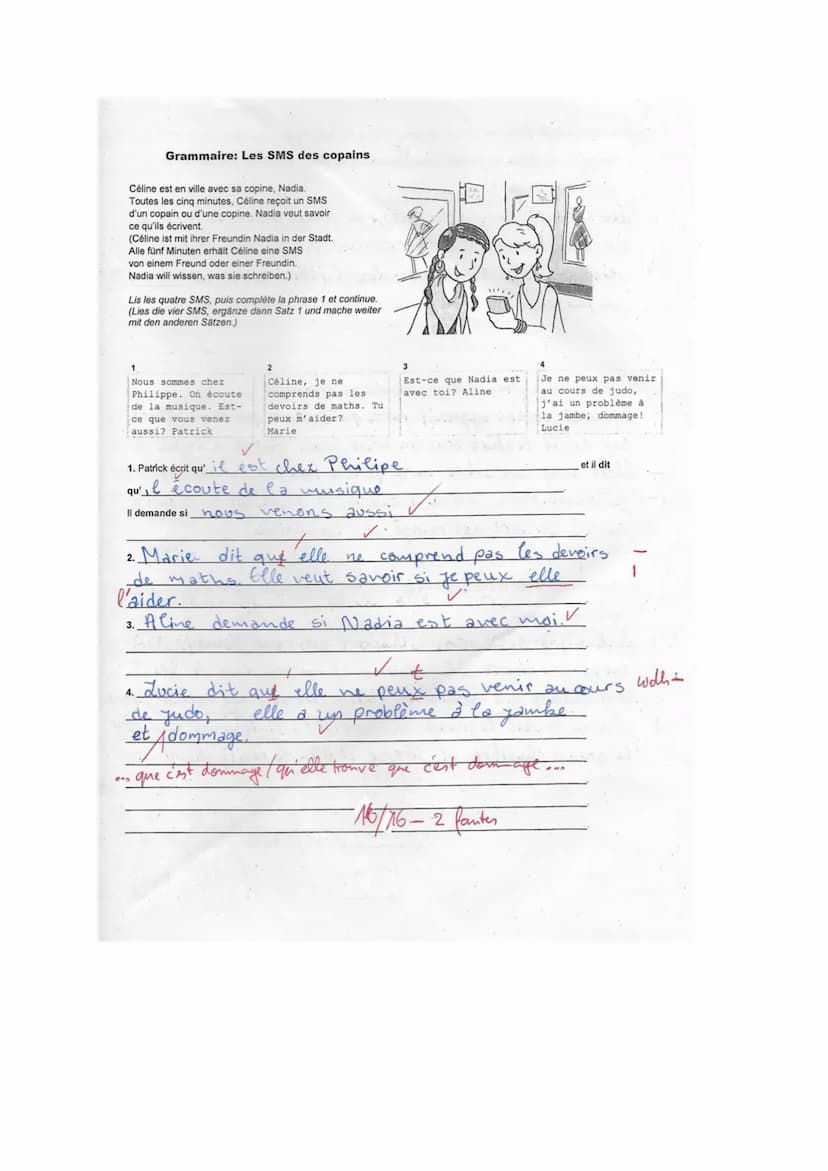 Grammaire: Les SMS des copains
Céline est en ville avec sa copine, Nadia.
Toutes les cinq minutes, Céline reçoit un SMS
d'un copain ou d'une copine. Nadia veut savoir
ce qu'ils écrivent.
(Céline ist mit ihrer Freundin Nadia in der Stadt.
Alle fünf Minuten erhält Céline eine SMS
von einem Freund oder einer Freundin.
Nadia will wissen, was sie schreiben.)
Lis les quatre SMS, puis complète la phrase 1 et continue.
(Lies die vier SMS, ergänze dann Satz 1 und mache weiter
mit den anderen Sätzen.)
1
Nous sommes chez
Philippe. On écoute
de la musique. Est-
ce que vous venez
aussi? Patrick
2
Céline, je ne
comprends pas les
devoirs de maths. Tu
peux m'aider?
Marie
3
Est-ce que Nadia est
avec toi? Aline
4
Je ne peux pas venir
au cours de judo,
j'ai un problème à
la jambe, dommage!
Lucie
1. Patrick écrit qu' il est chez Philipe et il dit
qu' il écoute de la musique
Il demande si nous venons aussi
2. Marie dit que elle ne comprend pas les devoirs
de maths. Elle veut savoir si je peux elle
l'aider.
3. Aline demande si Nadia est avec moi.
4. Lucie dit que elle ne peux t pas venir au cours
de judo, elle a un problème à la jambe
et dommage.
... que c'est dommage / qu'elle trouve que c'est dommage...
16/16 – 2 fautes